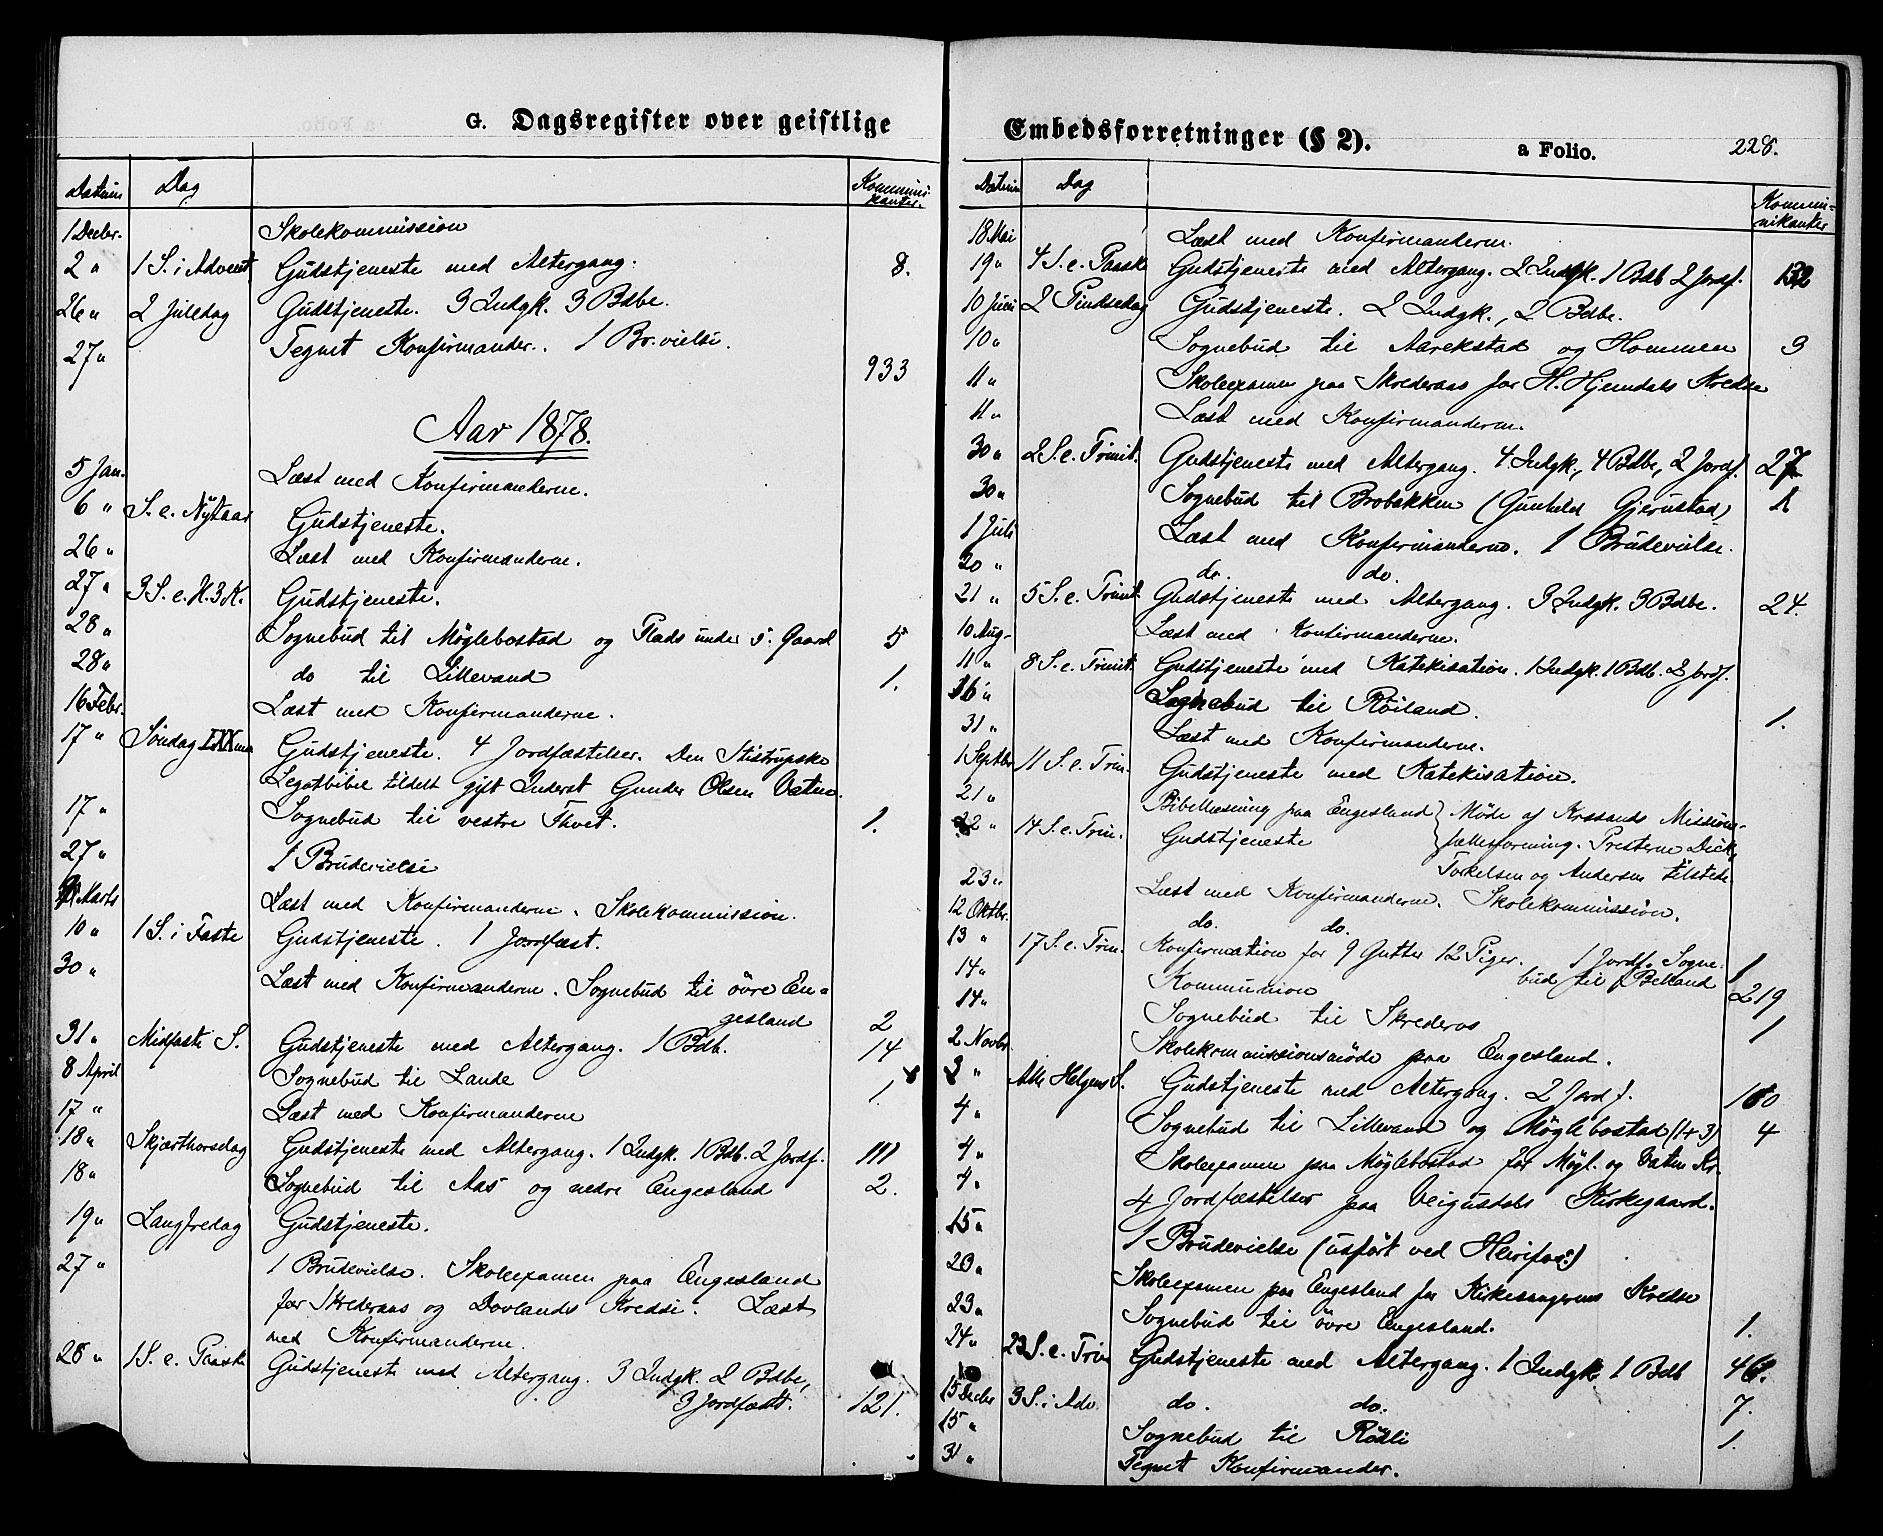 G. Dagsregister over geistlige
Datum Dag Kommuni-
kanter.
1 Decbr. Skolekommission
2 " 1 S. i Advent Gudstjeneste med Altergang. 8.
26 " 2 Juledag Gudstjeneste. 3 Indgk. 3 Bdbe.
27 " Tegnet Konfirmander. 1 Br.vielse.
933
Aar 1878.
5 Jan. Læst med Konfirmanderne.
6 " S. e. Nytaar Gudstjeneste.
26 " Læst med Konfirmanderne.
27 " 3 S. e. H. 3 K. Gudstjeneste.
28 " Sognebud til Möglebostad og Plads under s. Gaard 5
28 " do til Lillevand 1.
16 Febr. Læst med Konfirmanderne.
17 " Søndag LXXma Gudstjeneste. 4 Jordfæstelser. Den Stistrupske
Legatbibel tildelt gift Inderst Gunder Olsen Vatne.
17 " Sognebud til vestre Thvet. 1.
27 " 1 Brudevielse
Marts Læst med Konfirmanderne. Skolekommission.
10 " 1 S. i Faste Gudstjeneste. 1 Jordfæst.
30 " Læst med Konfirmanderne. Sognebud til övre En-
gesland 2
31 " Midfaste S. Gudstjeneste med Altergang. 1 Bdb. 14
8 April Sognebud til Lande 1.
17 " Læst med Konfirmanderne
18 " Skjærthorsdag Gudstjeneste med Altergang. 1 Indgk. 1 Bdb. 2 Jordf. 111
18 " Sognebud til Aas og nedre Engesland 2.
19 " Langfredag Gudstjeneste.
27 " 1 Brudevielse. Skoleexamen paa Engesland
for Skrederaas og Dovlands Kredse. Læst
med Konfirmanderne.
28 " 1 S. e. Paaske Gudstjeneste med Altergang. 3 Indgk. 2 Bdbe,
3 Jordfæst. 121.
Embedsforretninger (§ 2). a Folio. 228.
Datum Dag Kommu-
nikanter
18 Mai Læst med Konfirmanderne.
19 " 4 S. e. Paaske Gudstjeneste med Altergang. 2 Indgk. 1 Bdb 2 Jordf. 132
10 Juni 2 Pindsedag Gudstjeneste. 2 Indgk., 2 Bdbe.
10 " Sognebud til Aarekstad og Hommen 3
11 " Skoleexamen paa Skrederaas for H. Hjemdals Kredse
11 " Læst med Konfirmanderne.
30 " 2 S. e. Trinit. Gudstjeneste med Altergang. 4 Indgk., 4 Bdbe, 2 Jordf. 27
30 " Sognebud til Brobakken (Gunhild Gjerustad) 1
1 Juli Læst med Konfirmanderne. 1 Brudevielse.
20 " do. do.
21 " 5 S. e. Trinit. Gudstjeneste med Altergang. 3 Indgk. 3 Bdbe. 24.
10 Aug. Læst med Konfirmanderne.
11 " 8 S. e. Trinit. Gudstjeneste med Katekisation. 1 Indgk. 1 Bdb. 2 Jordf.
16 " Sognebud til Röiland. 1.
31 " Læst med Konfirmanderne.
1 Septbr. 11 S. e. Trin. Gudstjeneste med Katekisation.
21 " Bibellæsning paa Engesland } Møde af Krssands Missions-
22 " 14 S. e. Trin. Gudstjeneste fællesforening. Presterne Dick,
Torkelsen og Andersen tilstede.
23 " Læst med Konfirmanderne. Skolekommission.
12 Oktbr. do. do.
13 " 17 S. e. Trin. Konfirmation for 9 Gutter 12 Piger. 1 Jordf. Sogne-
bud til Belland 1
14 " Kommunion 219
14 " Sognebud til Skrederos 1
2 Novbr. Skolekommissionsmöde paa Engesland.
3 " Alle Helgens S. Gudstjeneste med Altergang. 2 Jordf. 160
4 " Sognebud til Lillevand og Möglebostad (1+3) 4
4 " Skoleexamen paa Möglebostad for Mögl. og Vatne Kr.
4 " 4 Jordfæstelser paa Veigusdals Kirkegaard.
15 " 1 Brudevielse (udført ved Herefos:)
20 " Skoleexamen paa Engesland for Kirkesangerens Kredse
23 " Sognebud til övre Engesland. 1.
24 " 23 S. e. Trin Gudstjeneste med Altergang. 1 Indgk 1 Bdb 46.
15 Decbr 3 S. i Adv. do. do. 7.
15 " Sognebud til Rödli 1.
31 " Tegnet Konfirmander.